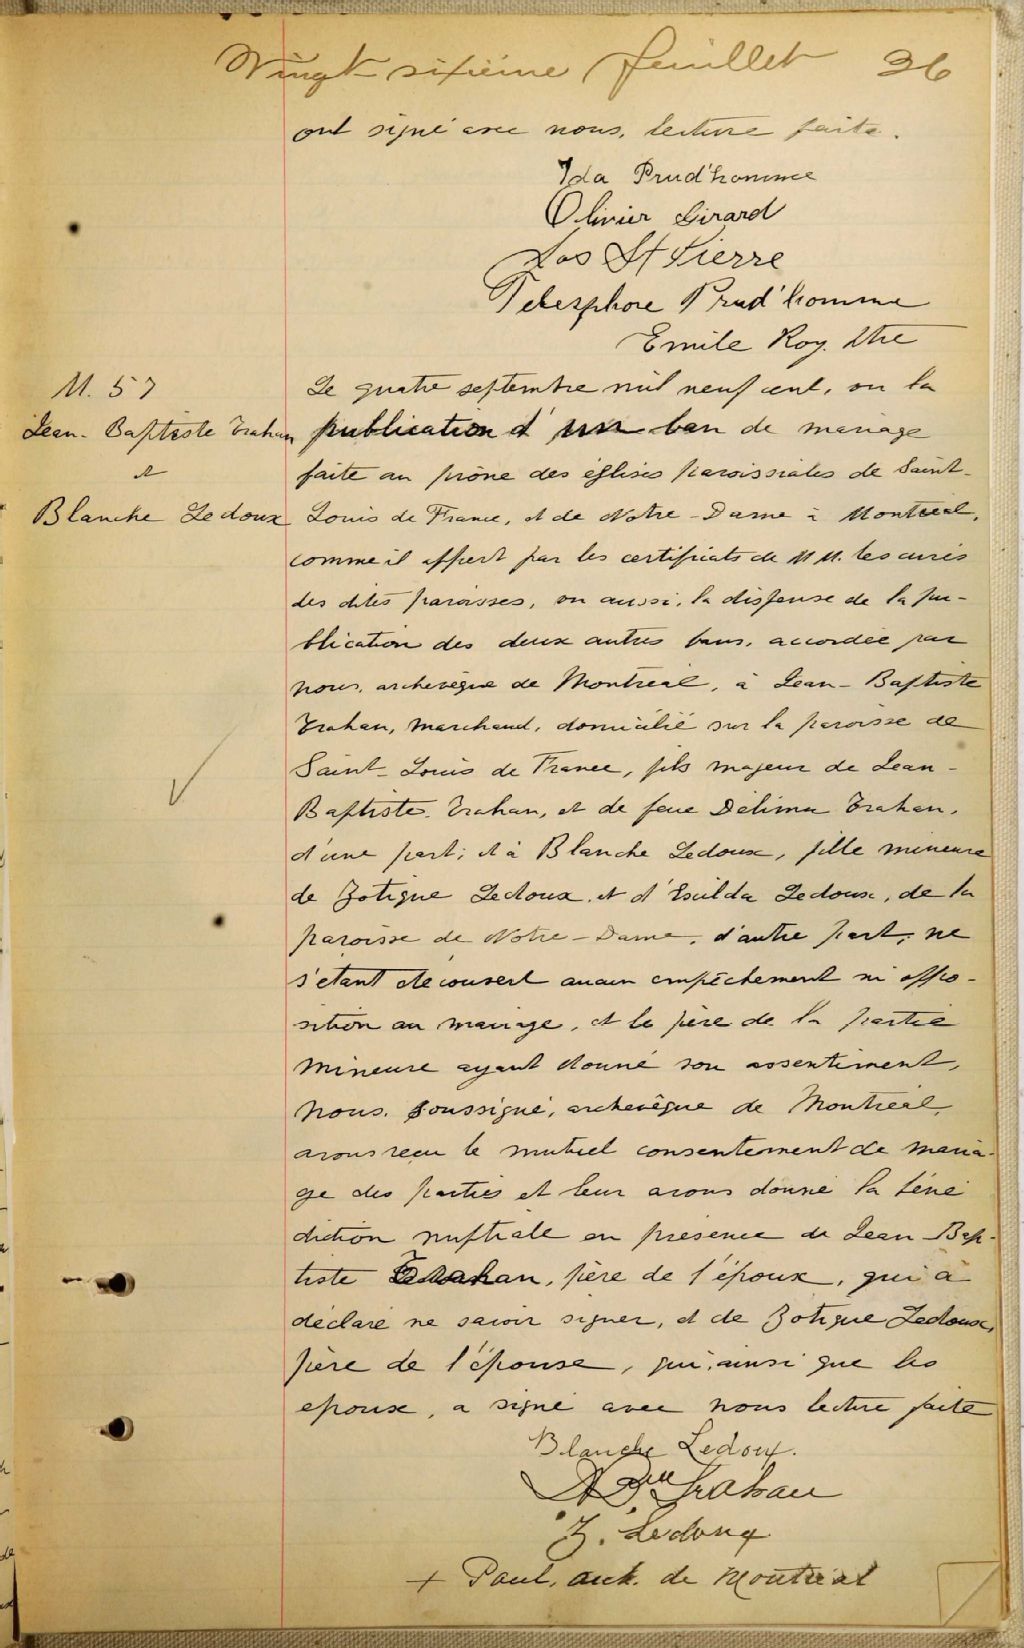 Vingt sixième feuillet 26
ont signé avec nous, lecture faite.
Ida Prud'homme
Olivier Girard
Jos St Pierre
Telesphore Prud'homme
Emile Roy. Ptre
M. 57
Jean-Baptiste Trahan
et
Blanche Ledoux
Le quatre septembre mil neuf cent, vu la
publication d'un ban de mariage
faite au prône des églises paroissiales de Saint-
Louis de France, et de Notre-Dame à Montréal,
comme il appert par les certificats de MM. les curés
des dites paroisses, vu aussi, la dispense de la pu-
blication des deux autres bans, accordée par
nous, archevêque de Montréal, à Jean-Baptiste
Trahan, marchand, domicilié sur la paroisse de
Saint-Louis de France, fils majeur de Jean-
Baptiste Trahan, et de feue Délima Trahan,
d'une part; et à Blanche Ledoux, fille mineure
de Zotique Ledoux, et d'Exilda Ledoux, de la
paroisse de Notre-Dame, d'autre part; ne
s'étant découvert aucun empêchement ni oppo-
sition au mariage, et le père de la partie
mineure ayant donné son assentiment,
nous, soussigné, archevêque de Montréal,
avons reçu le mutuel consentement de maria-
ge des parties et leur avons donné la béné
diction nuptiale en présence de Jean-Bap-
tiste Trahan, père de l'époux, qui a
déclaré ne savoir signer, et de Zotique Ledoux,
père de l'épouse, qui, ainsi que les
epoux, a signé avec nous lecture faite
Blanche Ledoux.
J Bte Trahan
Z. Ledoux
+ Paul, arch. de Montréal